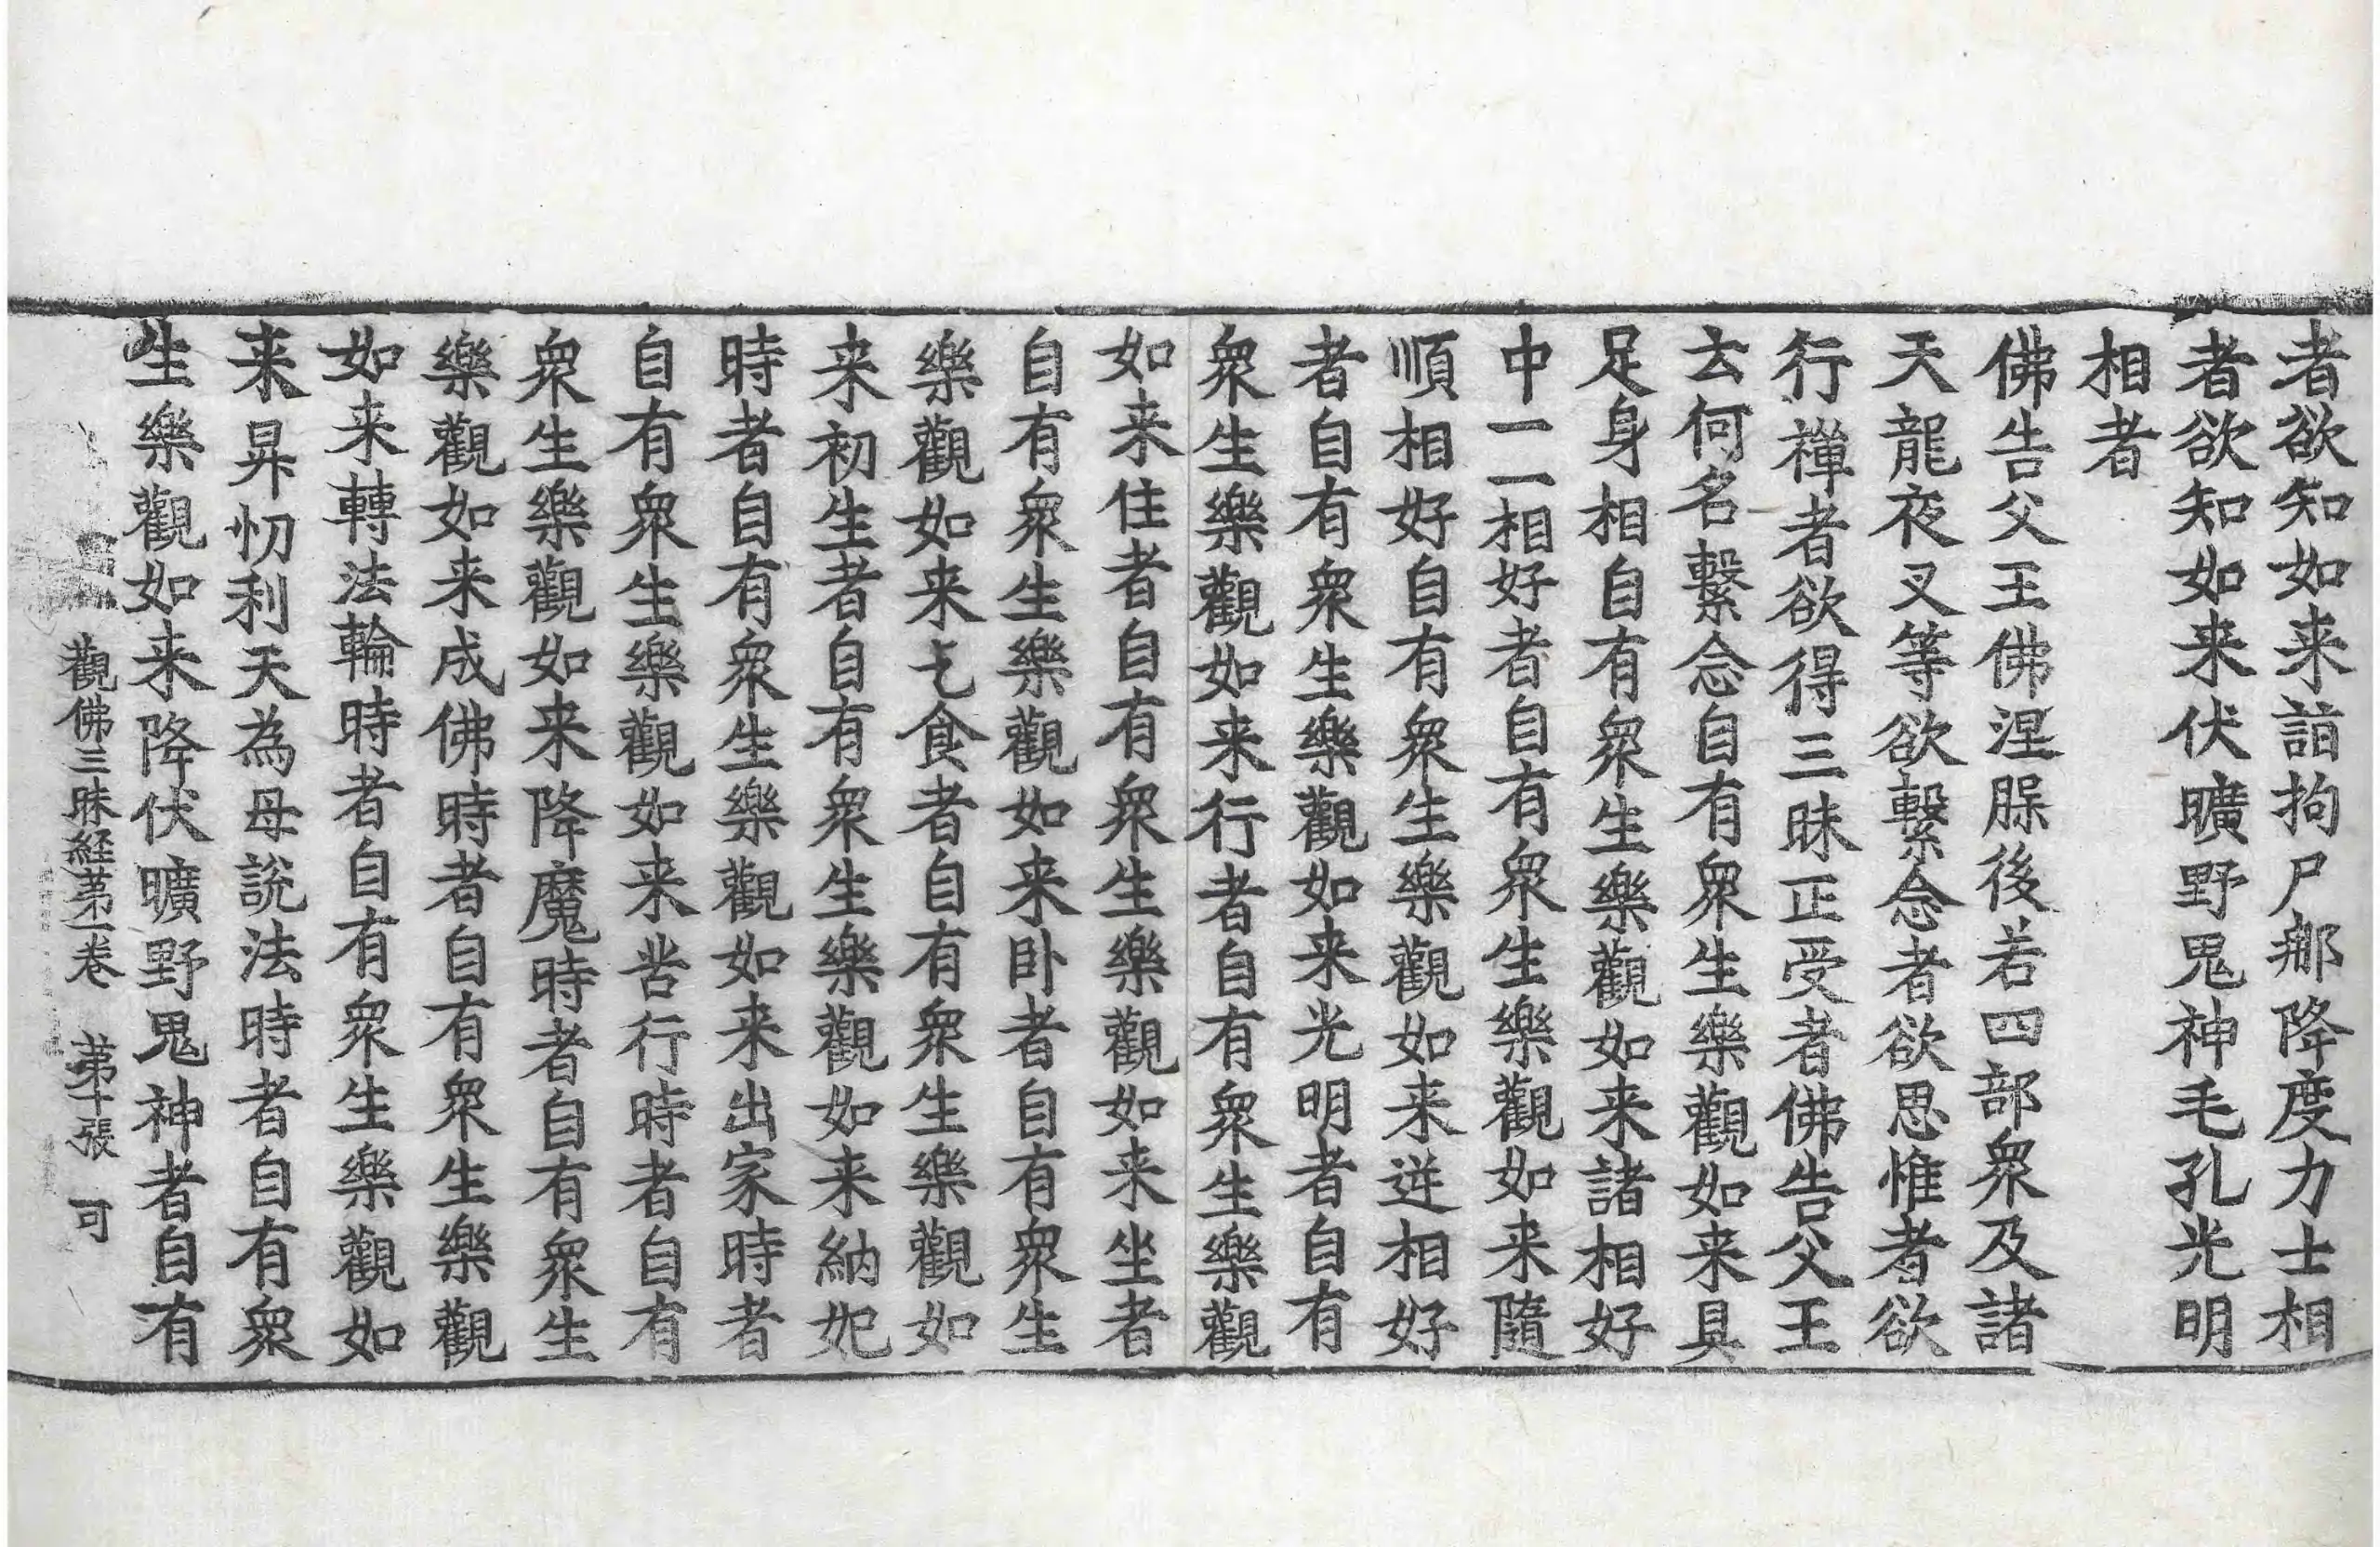 者欲知如来詣拘尸𨚗降度力士相
者欲知如来伏曠野鬼神毛孔光明
相者
佛告父王佛涅槃後若四部衆及諸
天龍夜叉等欲繫念者欲思惟者欲
行禪者欲得三昧正受者佛告父王
云何名繫念自有衆生樂觀如来具
足身相自有衆生樂觀如来諸相好
中一一相好者自有衆生樂觀如来隨
順相好自有衆生樂觀如来逆相好
者自有衆生樂觀如来光明者自有
衆生樂觀如来行者自有衆生樂觀
如来住者自有衆生樂觀如来坐者
自有衆生樂觀如来卧者自有衆生
樂觀如来乞食者自有衆生樂觀如
来初生者自有衆生樂觀如来納妃
時者自有衆生樂觀如来出家時者
自有衆生樂觀如来苦行時者自有
衆生樂觀如来降魔時者自有衆生
樂觀如来成佛時者自有衆生樂觀
如来轉法輪時者自有衆生樂觀如
来昇忉利天為母說法時者自有衆
生樂觀如来降伏曠野鬼神者自有
觀佛三昧経苐一卷 苐十張 可